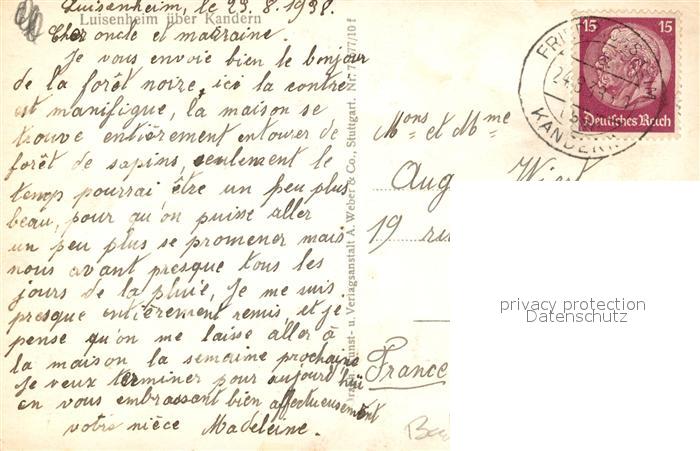 Luisenheim, le 23.8.1938.
Luisenheim über Kandern
Cher oncle et marraine.
Je vous envoie bien le bonjour
de la forêt noire, ici la contré
est manifique, la maison se
trouve entièrement entourer de
forêt de sapins, seulement le
temps pourrai être un peu plus
beau, pour qu'on puisse aller
un peu plus se promener mais
nous avant presque tous les
jours de la pluie, Je me suis
presque entièrement remis, et je
pense qu'on me laisse aller à
la maison la semaine prochaine
Je veux terminer pour aujourd'hui
en vous embrassant bien affectueusement
votre nièce Madeleine.
Kunst- u. Verlagsanstalt A. Weber & Co., Stuttgart. Nr.
Mons et Mme
Aug
19 rue
France
15 15
Deutsches Reich
KANDERN
privacy protection
Datenschutz